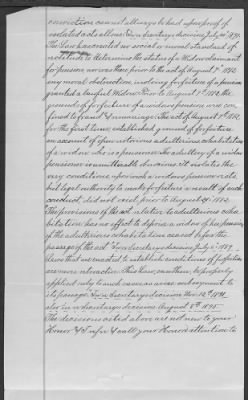 conviction cannot always be had upon proof of
isolated acts alone. Two Secretarys decisions July 20th 1891.
The Law has created no social or moral standard of
rectitude to determine the status of a Widow claimant
for pension nor was there prior to the act of August 7th 1882
any moral obstruction, involving forfeiture of a pension
granted a lawful Widow. Prior to August 7th 1882 the
grounds of forfeiture of a widows pension were con
fined to fraud & remarriage. The act of August 7th 1882
for the first time, established ground of forfeiture
on account of open notorious adulterous cohabitation
of a widow who is a pensioner the adultery of a widow
pensioner is unmitigably obvious. It violates the
very conditions upon which a widows pension rests,
but legal authority to make forfeiture a result of such
conduct, did not exist, prior to August 7th 1882.
The provisions of the act relative to adulterous coha
bitation has no effect to deprive a widow of her pension
if the adulterous cohabitation ceased before the
passage of the act. Two Secretarys decision July 6th 1889.
Laws that are enacted, to establish conditions of forfeiture
are never retroactive. This law, on others, to be properly
applied only to such cases as arose subsequent to
its passage. Two Secretarys decision Nov. 12th 1891,
also in a Secretarys decision August 8th 1895.
The decisions cited above are not new to your
Honor & I refer & call your Honors attention to